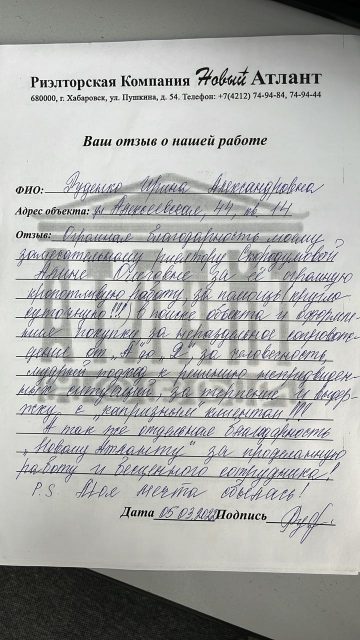 Риэлторская Компания Новый Атлант
680000, г. Хабаровск, ул. Пушкина, д. 54. Телефон: +7(4212) 74-94-84, 74-94-44
Ваш отзыв о нашей работе
ФИО: Руденко Ирина Александровна
Адрес объекта: ул Алексеевская, 44, кв. 14
Отзыв: Огромная благодарность моему
замечательному риэлтору
Олеговне за её огромную
кропотливую работу, за помощь (кругло
суточную!!!) в поиске объекта и оформле
ние покупки, за неразделенное сопровож
дение от "А" до "Я", за человечность,
мудрый подход к решению непредвиден
ных ситуаций, за терпение и выдер
жку с "капризным клиентом"!!!
А так же отдельная благодарность
"Новому Атланту" за проделанную
работу и бесценного сотрудника!
P.S. Моя мечта сбылась!
Дата 05.03.2022 Подпись